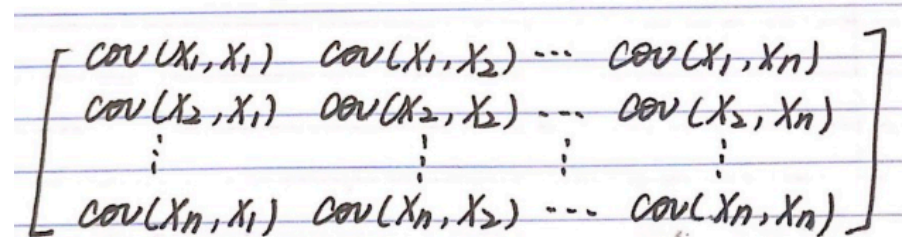 [ cov(X1, X1) cov(X1, X2) ... cov(X1, Xn) ]
cov(X2, X1) cov(X2, X2) ... cov(X2, Xn)
⋮ ⋮ ⋮ ⋮
cov(Xn, X1) cov(Xn, X2) ... cov(Xn, Xn)